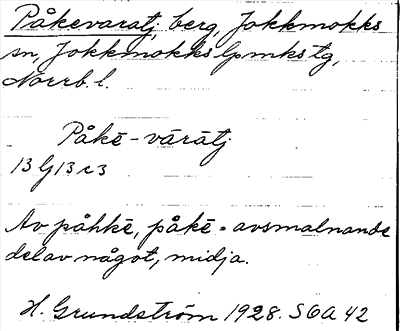 Påkevaratj, berg, Jokkmokks
sn, Jokkmokks lpmkstg,
Norrb. l.
Påkē-vārātj
13 G 13 c 3
Av påhkē, påkē = avsmalnande
del av något, midja.
H. Grundström 1928. SOA 42